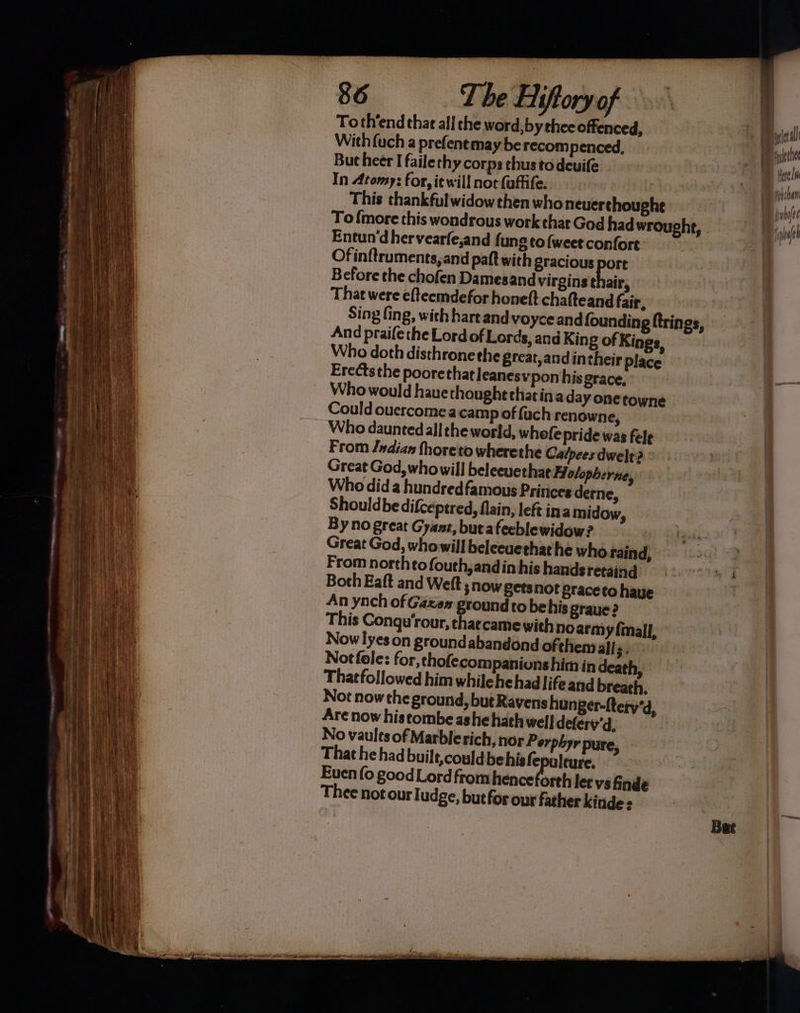 86 The Hiſtory of
To th'end that all the word, by thee offenced,
With ſuch a preſent may be recompenced,
But heer I faile thy corps thus to deuiſe
In Atomy: for, it will not ſuffiſe.
This thankful widow then who neuer thought
To ſmore this wondrous work that God had wrought,
Entun'd her vearſe, and ſung to ſweet confort
Of inſtruments, and paſt with gracious port
Before the choſen Dames and virgins thair,
That were eſteemd efor honeſt chaſte and fair,
Sing ſing, with hart and voyce and ſounding ſtrings,
And praiſe the Lord of Lords, and King of Kings,
Who doth disthrone the great, and in their place
Erects the poore that leanes vpon his grace,
Who would haue thought that in a day one towne
Could ouercome a camp of ſuch renowne,
Who daunted all the world, whoſe pride was felt
From Indian ſhore to where the Calpees dwelt?
Great God, who will beleeue that Holopherne,
Who did a hundred famous Princes derne,
Should be diſceptred, ſlain, left in a midow,
By no great Gyant, but a feeble widow?
Great God, who will beleeue that he who raind,
From north to ſouth, and in his hands retaind
Both Eaſt and Weſt; now gets not grace to haue
An ynch of Gazon ground to be his graue?
This Conqu'rour, that came with no army ſmall,
Now lyes on ground abandond of them all;
Not ſole: for, thoſe companions him in death,
That followed him while he had life and breath.
Not now the ground, but Rauens hunger-ſterv'd,
Are now his tombe as he hath well deſerv'd,
No vaults of Marble rich, nor Porphyr pure,
That he had built, could be his ſepulture.
Euen ſo good Lord from henceforth let vs finde
Thee not our Iudge, but for our father kinde:
But